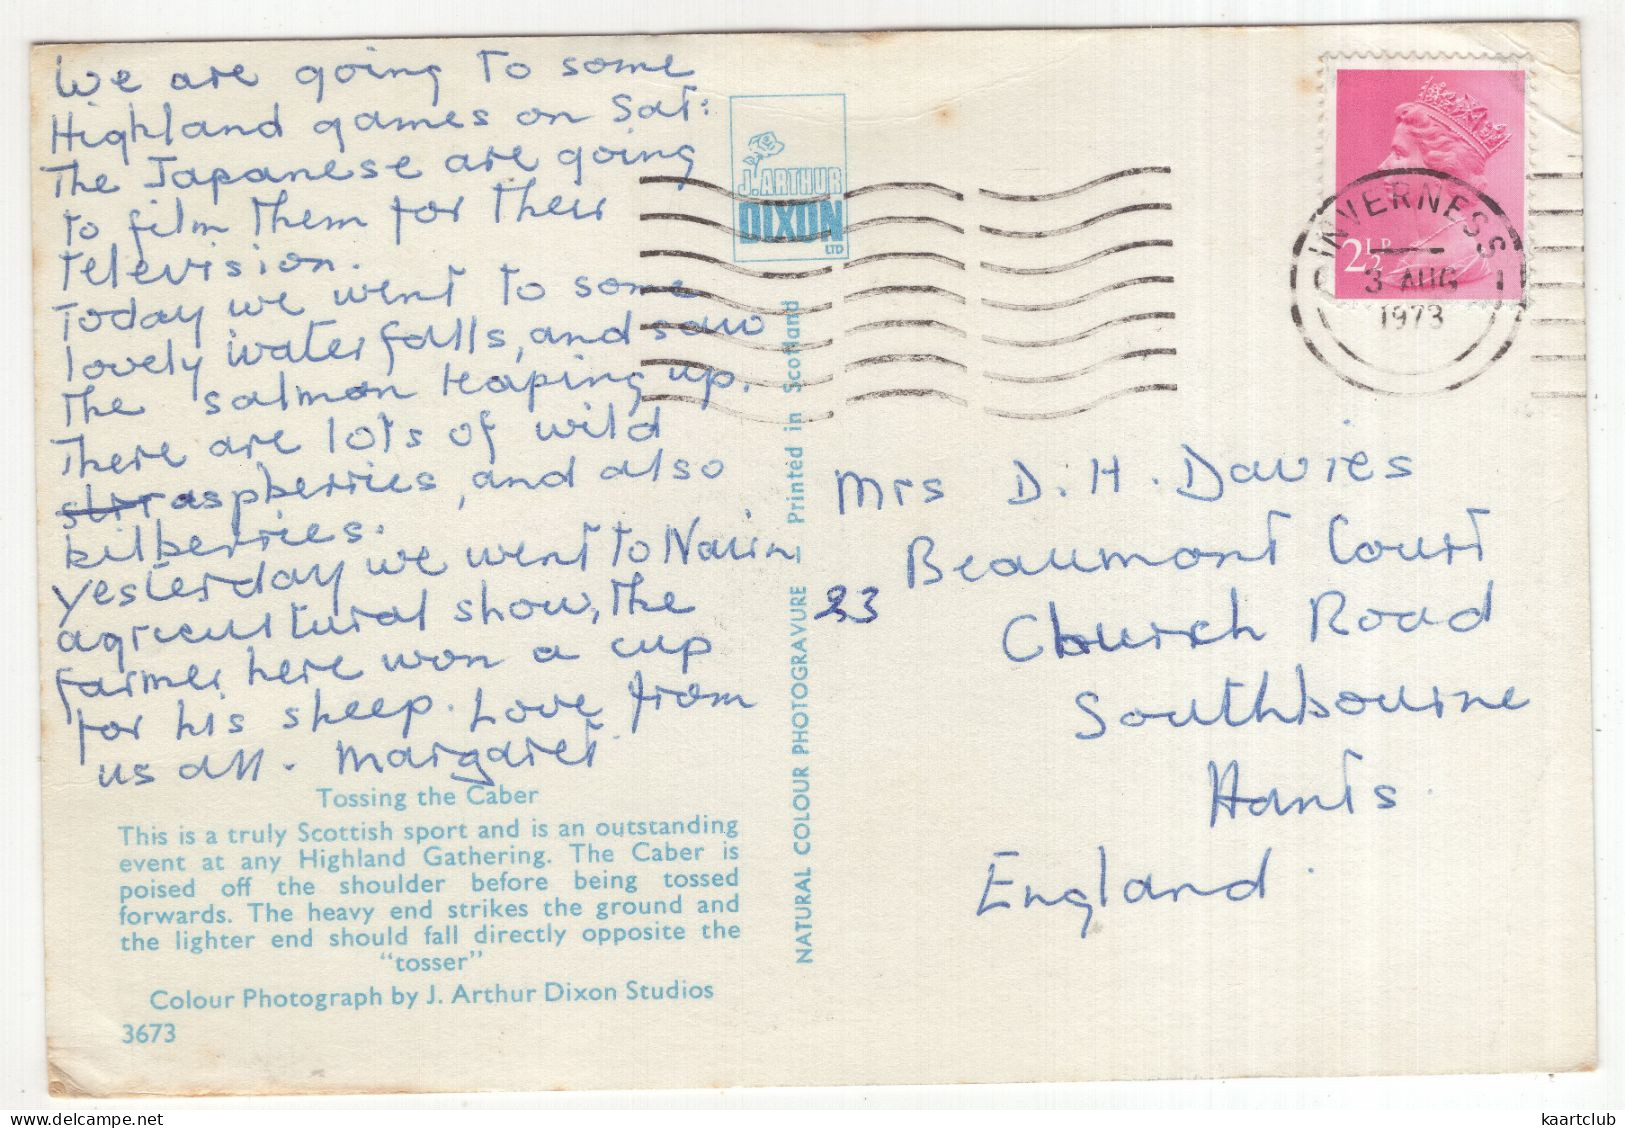 We are going to some
Highland games on Sat:
The Japanese are going
to film them for their
television.
Today we went to some
lovely waterfalls, and saw
the salmon leaping up.
There are lots of wild
raspberries, and also
bilberries.
Yesterday we went to Nairn
agricultural show, the
farmer here won a cup
for his sheep. Love from
us all. Margaret.
Tossing the Caber
This is a truly Scottish sport and is an outstanding
event at any Highland Gathering. The Caber is
poised off the shoulder before being tossed
forwards. The heavy end strikes the ground and
the lighter end should fall directly opposite the
"tosser"
Colour Photograph by J. Arthur Dixon Studios
3673
J. ARTHUR
DIXON
LTD
NATURAL COLOUR PHOTOGRAVURE — Printed in Scotland
2½P
INVERNESS
3 AUG
1973
Mrs D. H. Davies
23 Beaumont Court
Church Road
Southbourne
Hants.
England.
kaartclub